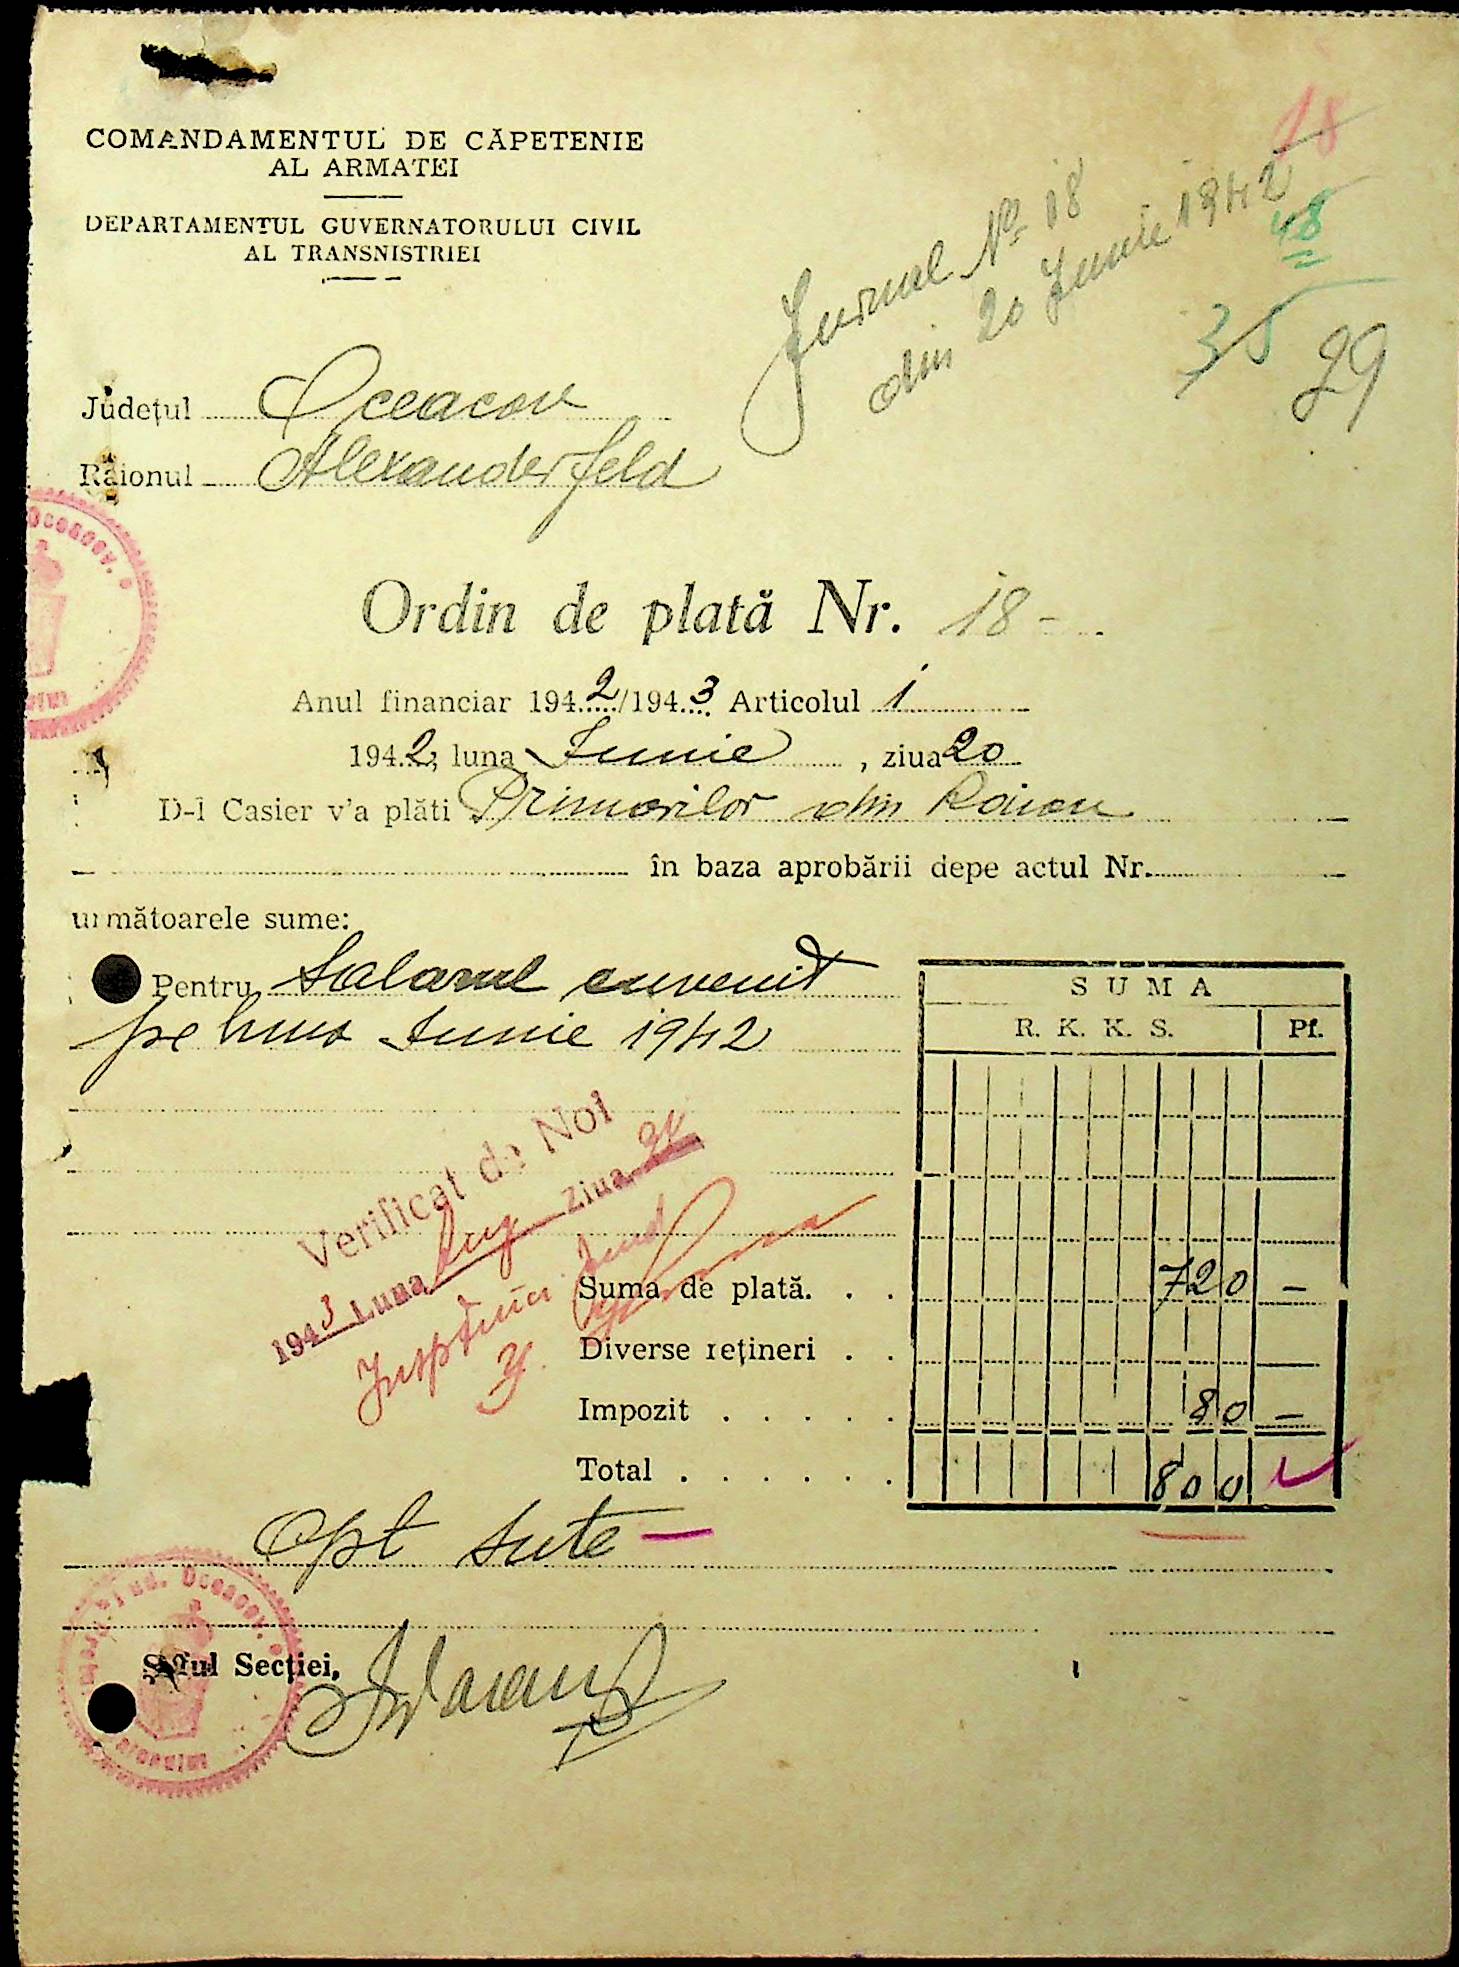 COMANDAMENTUL DE CĂPETENIE
AL ARMATEI
DEPARTAMENTUL GUVERNATORULUI CIVIL
AL TRANSNISTRIEI
18
Jurnal No 18
din 20 Iunie 1942
48
35
29
Județul Oceacov
Raionul Alexanderfeld
Oceacov.
Ordin de plată Nr. 18-
Anul financiar 1942/1943 Articolul 1
1942; luna Iunie, ziua 20
D-l Casier v'a plăti Primarilor din Raion
în baza aprobării depe actul Nr.
următoarele sume:
Pentru Salarul cuvenit
pe luna Iunie 1942
SUMA
R. K. K. S. Pf.
Verificat de Noi
1943 Luna Aug Ziua
Suma de plată. . . 720 —
Diverse rețineri . .
Impozit . . . . . 80 —
Total . . . . . . 800
Opt sute —
Jud. Oceacov.
Șeful Secției,